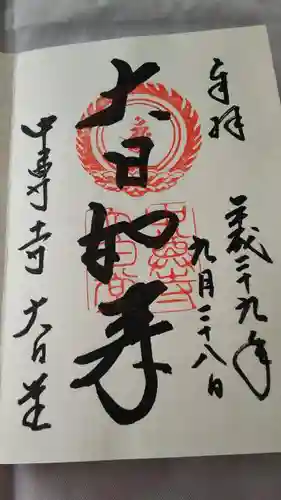 奉拝
平成二十九年
九月二十八日
大日如来
中尊寺 大日堂